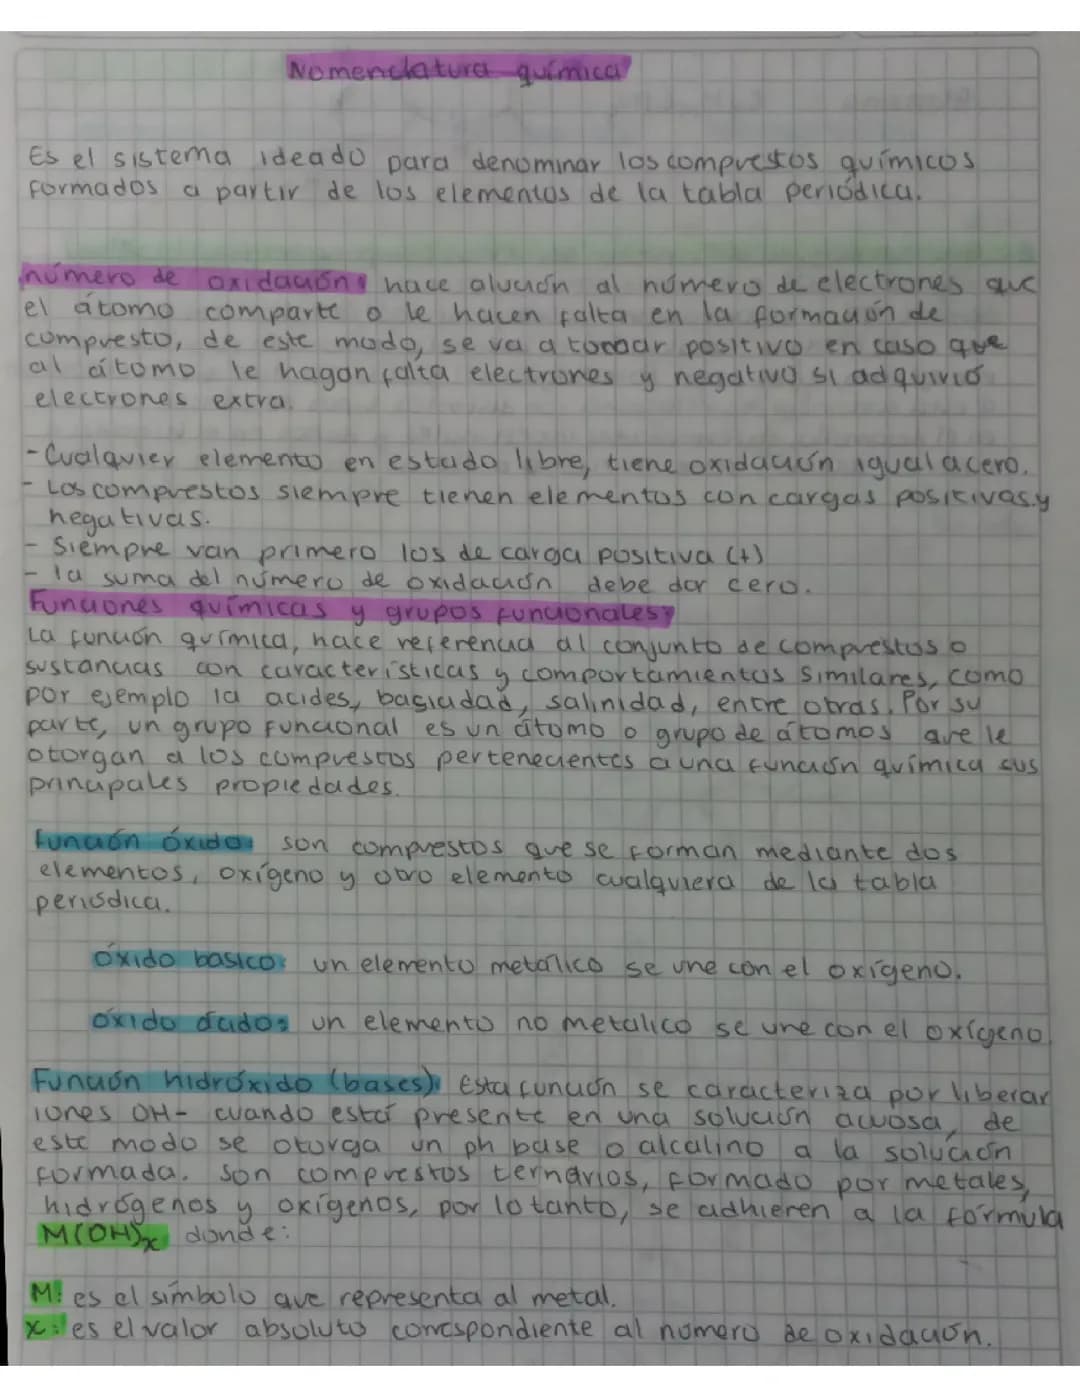 Nomenclatura química
Es el sistema ideado para denominar los compuestos químicos
formados a partir de los elementos de la tabla periódica.
número de oxidación: hace alución al número de electrones que
el átomo comparte o le hacen falta en la formación de
compuesto, de este modo, se va a tomar positivo en caso que
al átomo le hagan falta electrones y negativo si adquirió
electrones extra.
- Cualquier elemento en estado libre, tiene oxidación igual a cero.
- Los compuestos siempre tienen elementos con cargas positivas y
negativas.
- Siempre van primero los de carga positiva (+)
- la suma del número de oxidación debe dar cero.
Funciones químicas y grupos funcionales:
La función química, hace referencia al conjunto de compuestos o
sustancias con características y comportamientos similares, como
por ejemplo la acides, basicidad, salinidad, entre otras. Por su
parte, un grupo funcional es un átomo o grupo de átomos que le
otorgan a los compuestos pertenecientes a una función química sus
principales propiedades.
función óxido: son compuestos que se forman mediante dos
elementos, oxígeno y otro elemento cualquiera de la tabla
periódica.
óxido basico: un elemento metálico se une con el oxígeno.
óxido ácido: un elemento no metalico se une con el oxígeno.
Función hidróxido (bases): Esta función se caracteriza por liberar
iones OH- cuando está presente en una solución acuosa, de
este modo se otorga un ph base o alcalino a la solución
formada. Son compuestos ternarios, formado por metales,
hidrógenos y oxígenos, por lo tanto, se adhieren a la fórmula
M(OH)x donde:
M: es el símbolo que representa al metal.
x: es el valor absoluto correspondiente al número de oxidación.